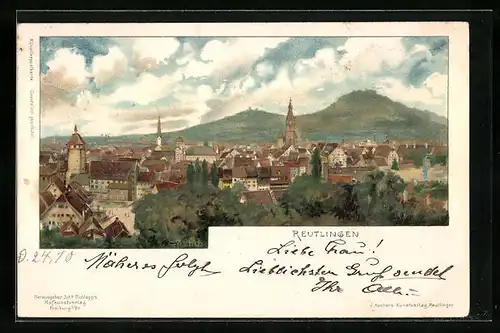 Künstlerpostkarte Gesetzlich geschützt
REUTLINGEN
D. 24.10
Näheres folgt
Liebe Frau!
Lieblichsten Gruß sendet
Ihr
Herausgeber Joh's Elchlepp's
Hofkunstverlag
Freiburg i/Br.
J. Kocher's Kunstverlag, Reutlingen